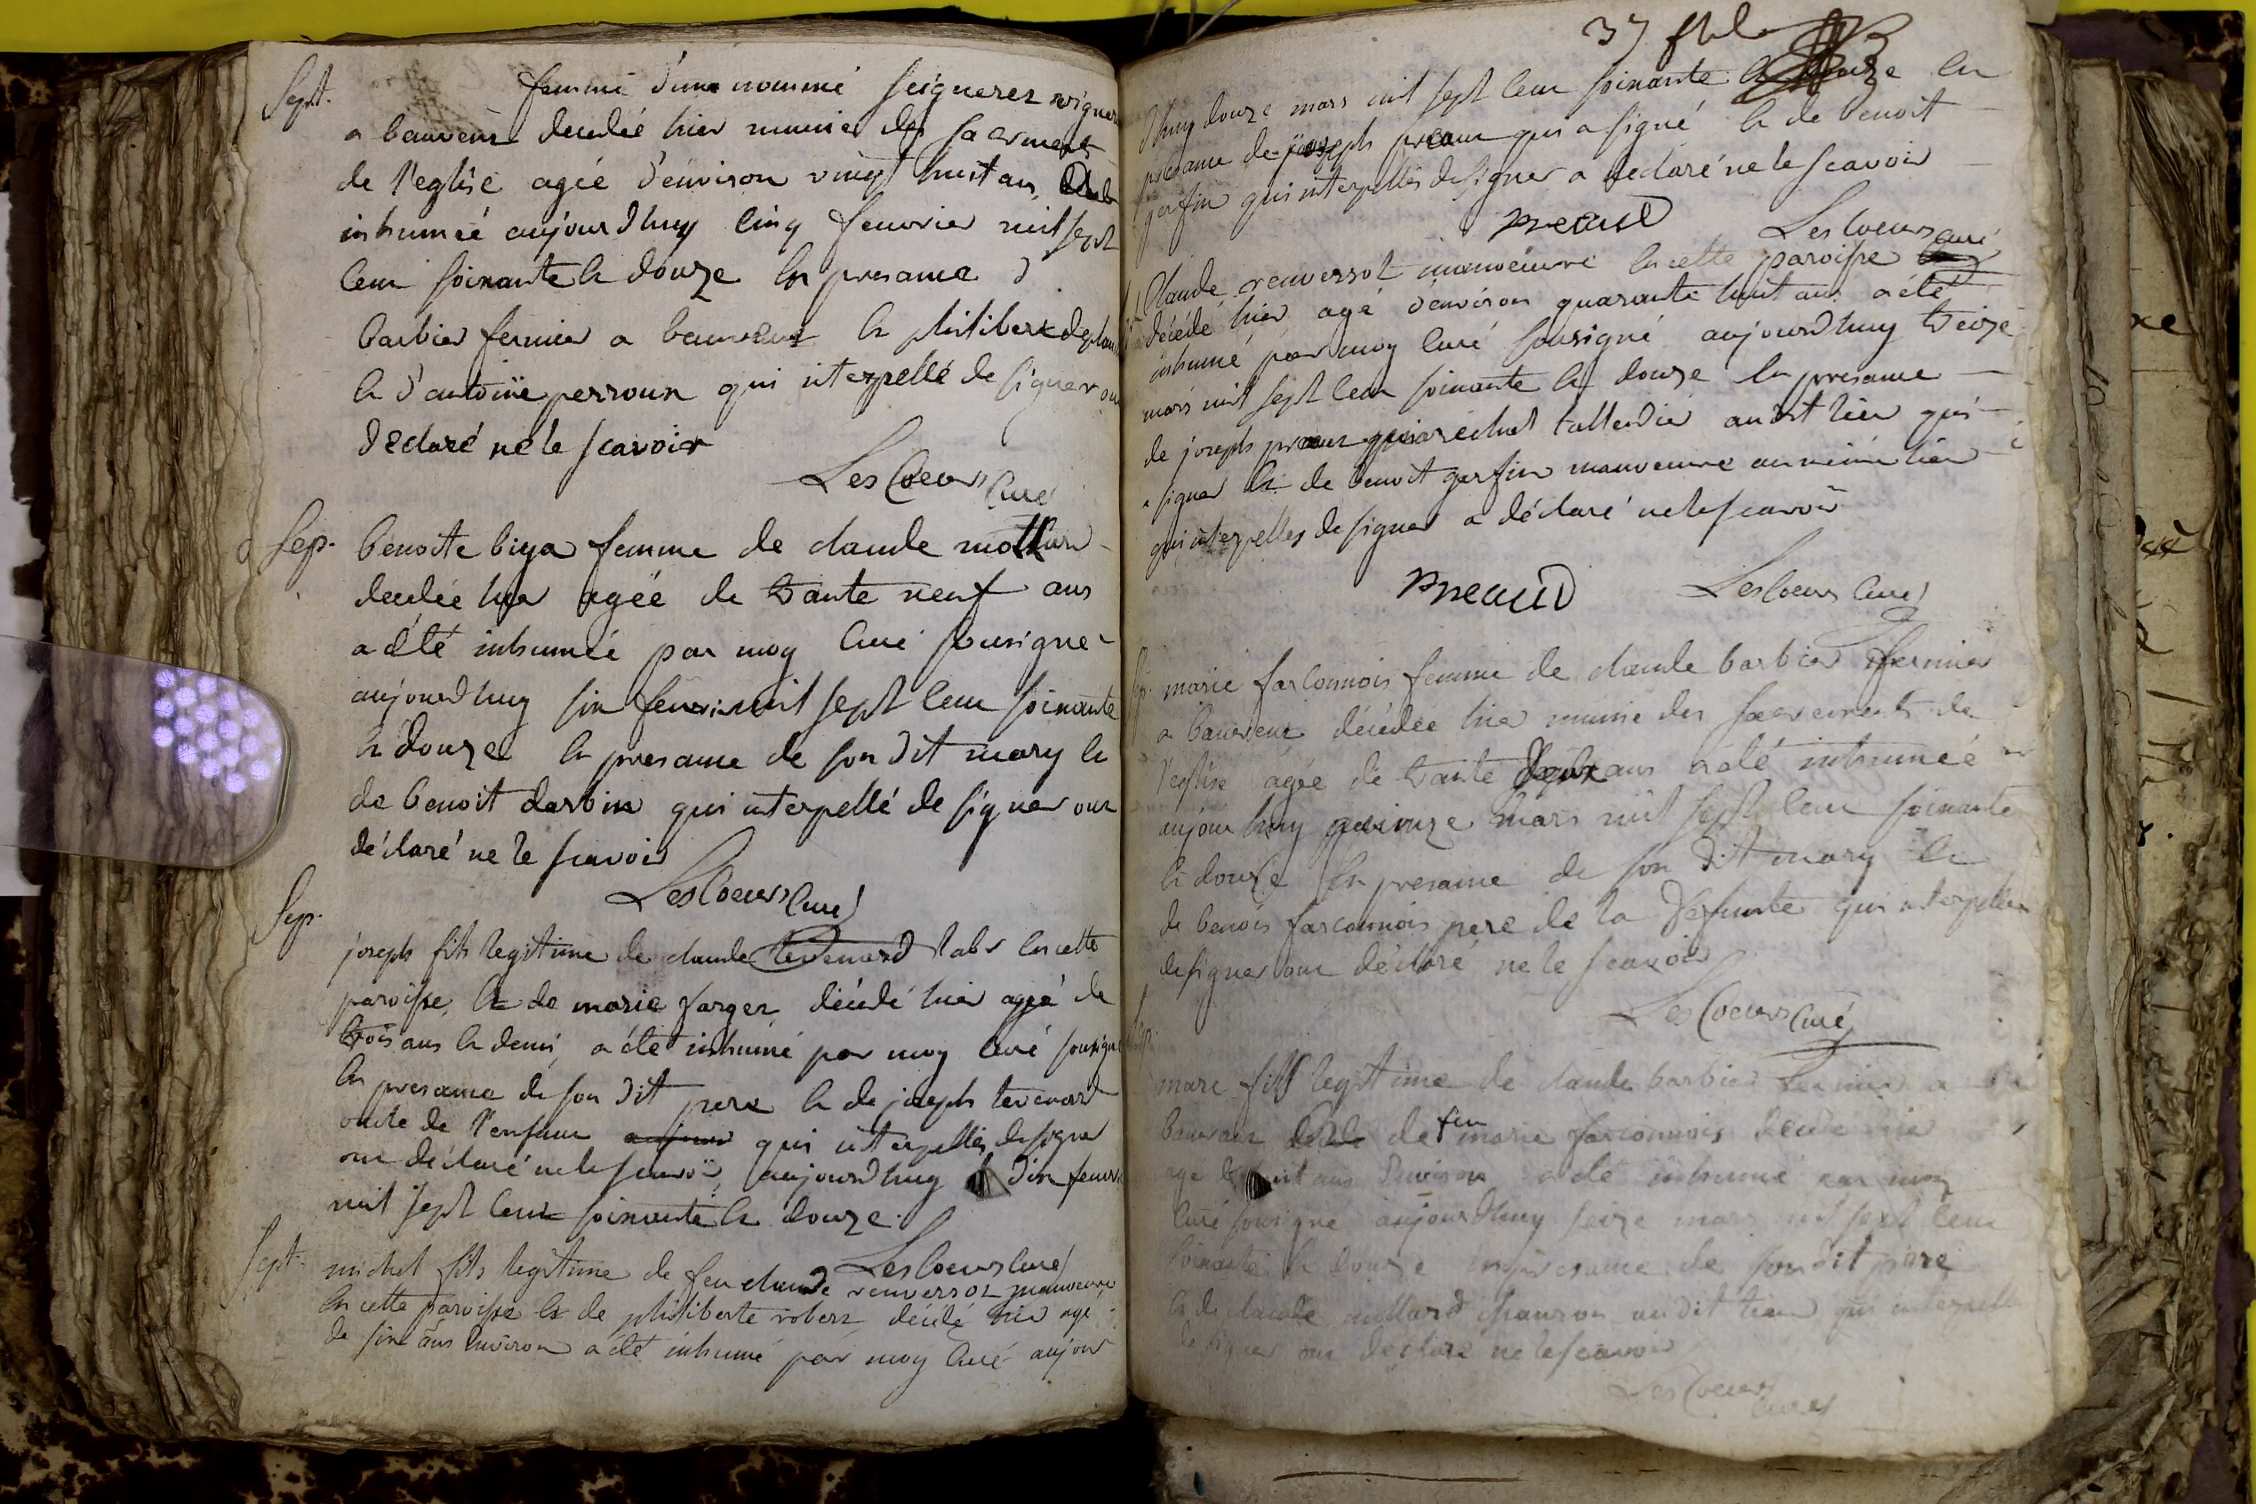 Sept.
femme d'une nommé seignerez
a bauvent decedée hier munie des sacrements
de l'eglise agée d'environ vingt huit ans
inhumée aujourdhuy cinq fevrier mil sept
cent soixante et douze en presance d
barbier fermier a bauvent et philibert
et d'antoine perroux qui interpellé de signer on
declaré ne le scavoir
Lescoeurs curé
Sep. benoite biya femme de claude
decedée hier agée de trante neuf ans
a été inhumée par moy curé sousigné
aujourdhuy six fevrier mil sept cent soixante
et douze en presance de son dit mary et
de benoit darbin qui interpellé de signer ont
déclaré ne le scavoir
Lescoeurs curé
Sep.
joseph fils legitime de claude tevenard lab en cette
paroisse, et de marie farges décédé hier agé de
trois ans et demi, a été inhumé par moy curé sousigné
en presance de son dit pere et de joseph tevenard
oncle de l'enfant qui interpellés de signer
ont déclaré ne le scavoir, aujourdhuy dix fevrier
mil sept cent soixante et douze.
Lescoeurs curé
Sept. michel fils legitime de feu claude renversot manoeuvre
en cette paroisse et de philiberte robert décédé hier agé
de six ans environ a été inhumé par moy curé aujour
37
dhuy douze mars mil sept cent soixante et douze en
presance de joseph preaud qui a signé et de benoit
gerfin qui interpellés de signer a declaré ne le scavoir
preaud Lescoeurs curé
Claude renversot manoeuvre en cette paroisse
décédé hier agé d'environ quarante huit ans a été
inhumé par moy curé sousigné aujourdhuy treize
mars mil sept cent soixante et douze en presance
de joseph preaud audit lieu qui
a signer et de benoit gerfin manoeuvre au même lieu
qui interpellés de signer a déclaré ne le scavoir
preaud Lescoeurs curé
Sep. marie farconnois femme de claude barbier fermier
a bauvent décédée hier munie des sacrements de
l'eglise agée de trante ans a été inhumée
aujourdhuy quinze mars mil sept cent soixante
et douze en presance de son dit mary et
de benois farconnois pere de la defunte qui interpellés
de signer ont déclaré ne le scavoir
Lescoeurs curé
marc fils legitime de claude barbier fermier a
bauvent de feu marie farconnois décédé hier
agé de huit ans environ a été inhumé par moy
curé sousigné aujourdhuy seize mars mil sept cent
soixante et douze en presance de son dit pere
et de claude audit lieu qui interpellé
de signer ont declaré ne le scavoir
Lescoeurs curé